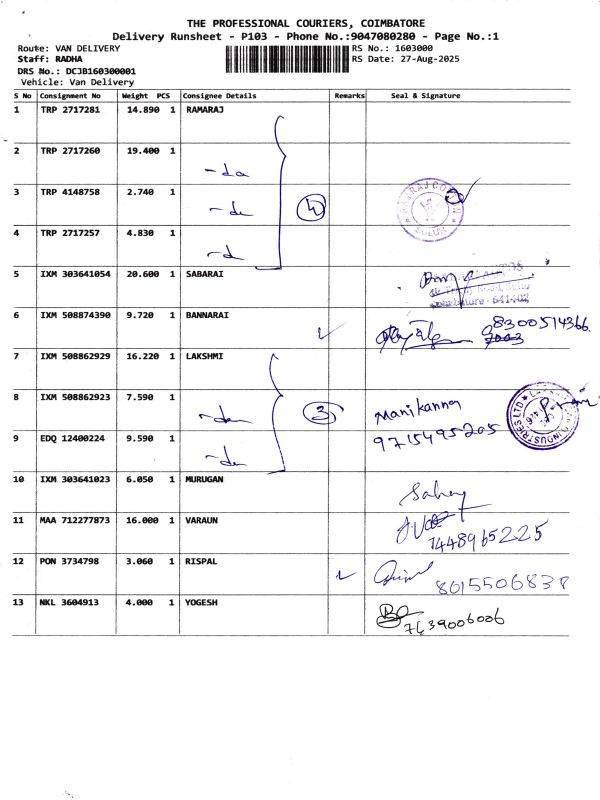 THE PROFESSIONAL COURIERS, COIMBATORE
Delivery Runsheet - P103 - Phone No.:9047080280 - Page No.:1
Route: VAN DELIVERY RS No.: 1603000
Staff: RADHA RS Date: 27-Aug-2025
DRS No.: DCJB160300001
Vehicle: Van Delivery
S No Consignment No Weight PCS Consignee Details Remarks Seal & Signature
1 TRP 2717281 14.890 1 RAMARAJ
2 TRP 2717260 19.400 1
-da
3 TRP 4148758 2.740 1
4
4 TRP 2717257 4.830 1
5 IXM 303641054 20.600 1 SABARAI
641402
6 IXM 508874390 9.720 1 BANNARAI
8300514366
7 IXM 508862929 16.220 1 LAKSHMI
8 IXM 508862923 7.590 1
3 Manikanna
9715495205
9 EDQ 12400224 9.590 1
10 IXM 303641023 6.050 1 MURUGAN
11 MAA 712277873 16.000 1 VARAUN
7448965225
12 PON 3734798 3.060 1 RISPAL
8015506838
13 NKL 3604913 4.000 1 YOGESH
7639006006